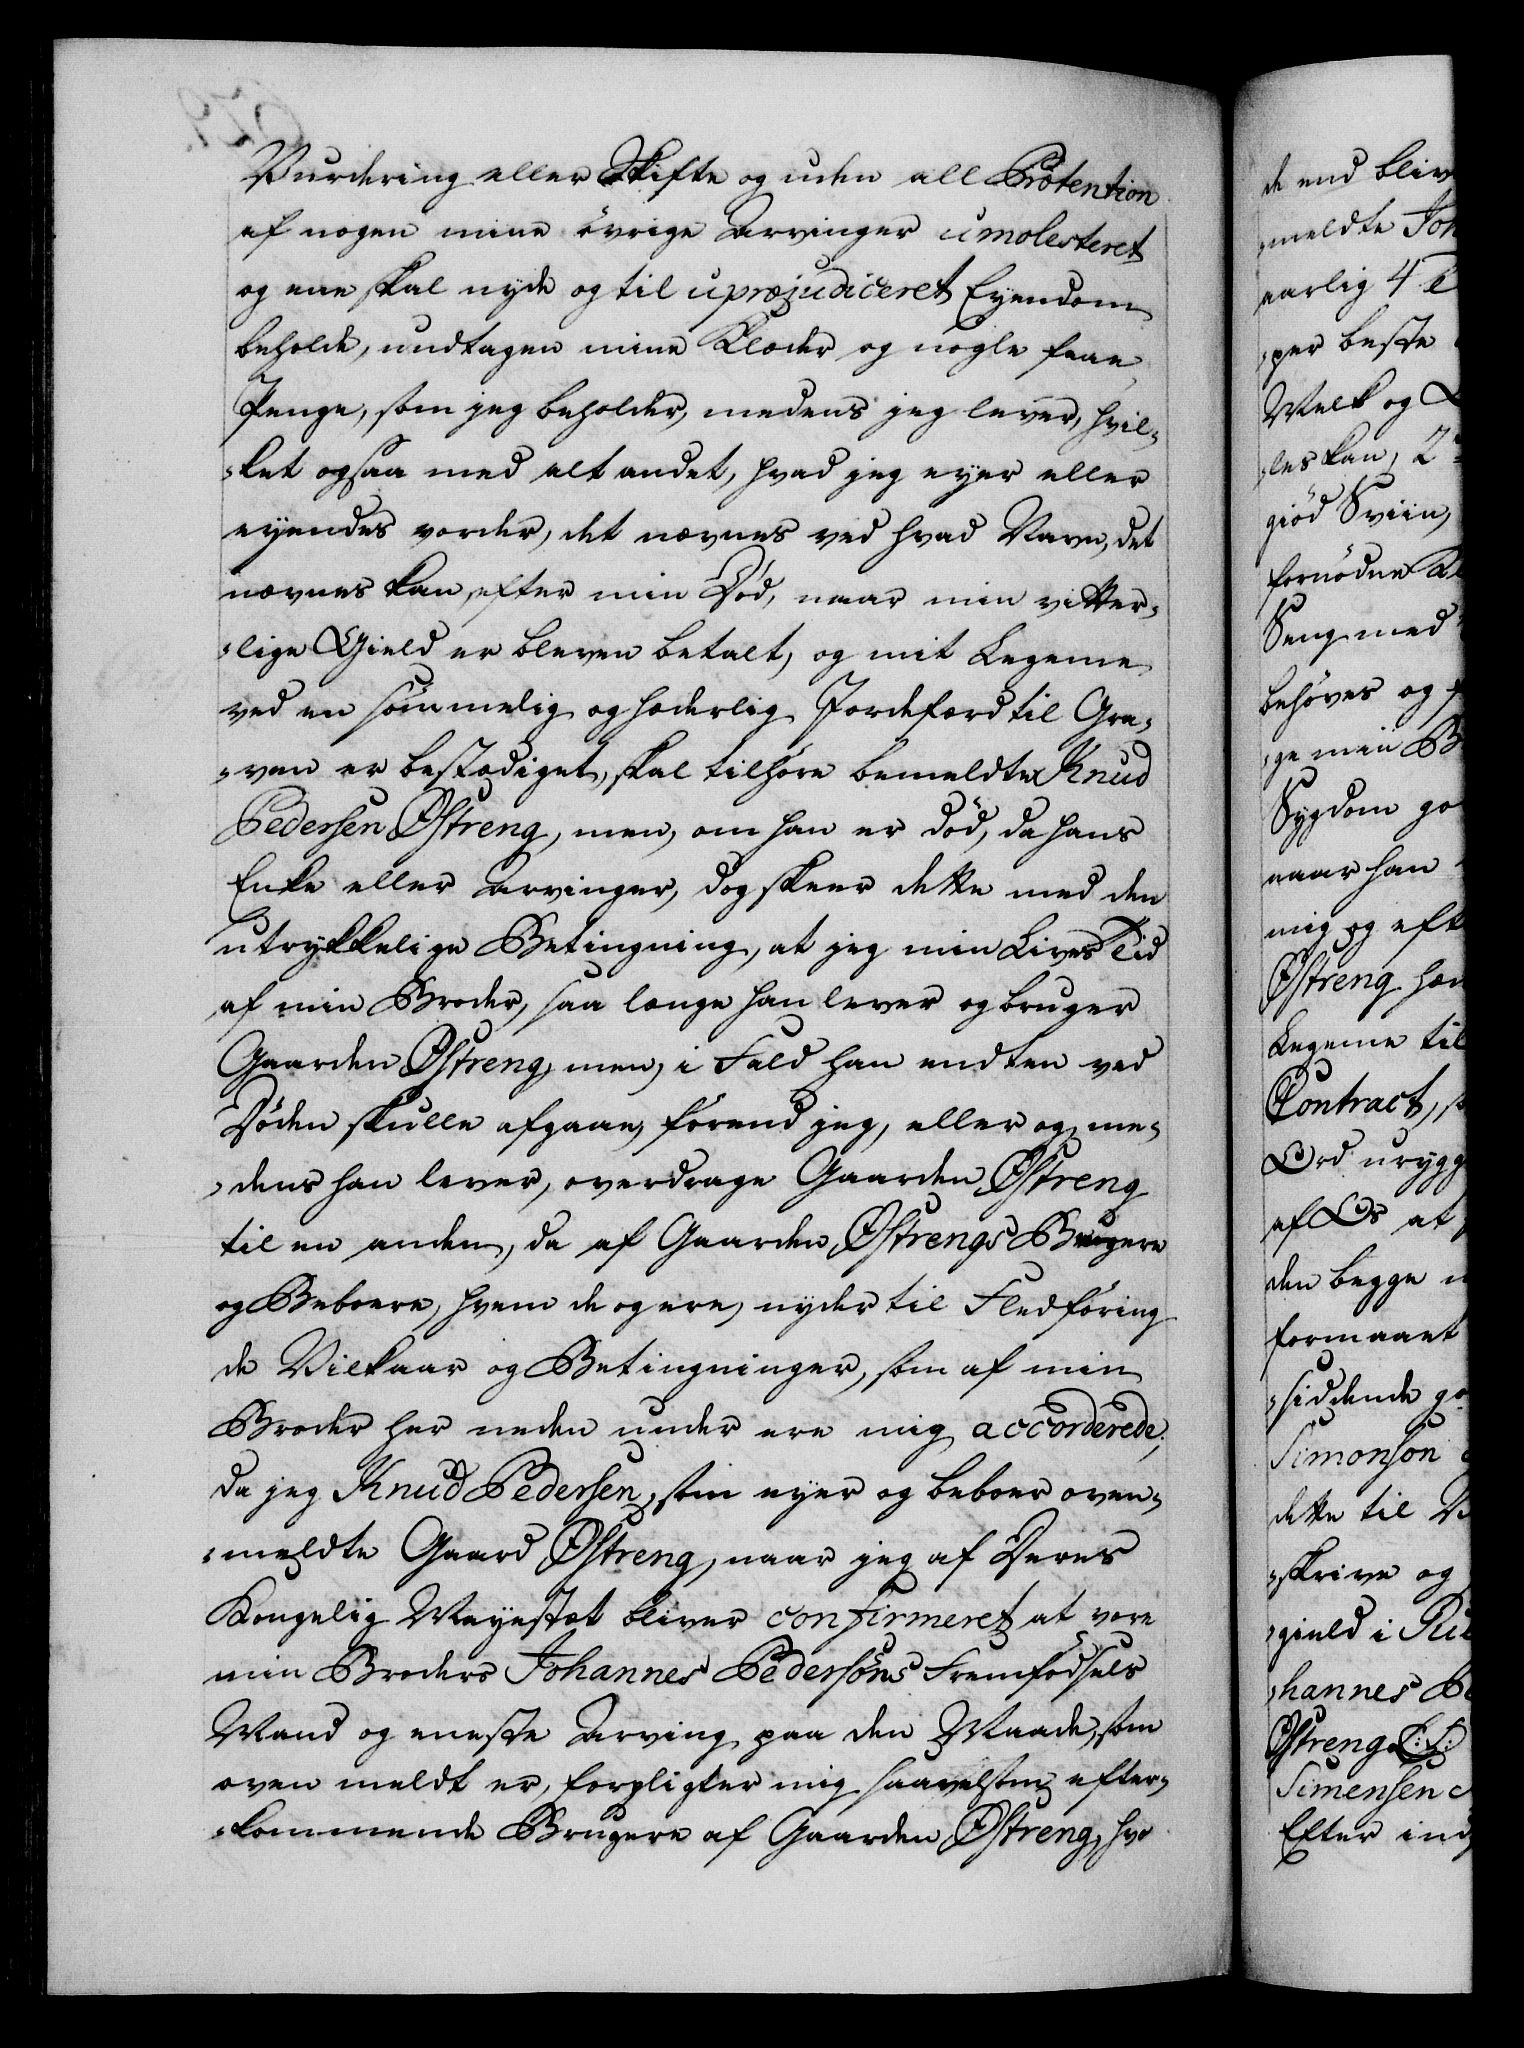 Vurdering eller Skifte og uden all Prætention
af nogen mine övrige Arvinger umolesteret
og ene skal nyde og til upræjudiceret Eyendom
beholde, undtagen mine Klæder og nogle faae
Penge, som jeg beholder, medens jeg lever, hvil-
-ket ogsaa med alt andet, hvad jeg eyer eller
eyendes vorder, det nævnes ved hvad Navn, det
nævnes kan, efter min Död, naar min vitter-
-lige Gield er bleven betalt, og mit Legeme
ved en sömmelig og hæderlig Jordefærd til Gra-
-ven er bestædiget, skal tilhöre bemeldte Knud
Pedersen Østreng, men, om han er död, da hans
Enke eller Arvinger, dog skeer dette med den
utrykkelige Betingning, at jeg min Lives Tid
af min Broder, saa længe han lever og bruger
Gaarden Østreng, men, i Fald han endten ved
Döden skulle afgaae, förend jeg, eller og me-
-dens han lever, overdrage Gaarden Østreng
til en anden, da af Gaarden Østrengs Brugere
og Beboere, hvem de og ere, nyder til Fledföring
de Vilkaar og Betingninger, som af min
Broder her neden under ere mig accorderede;
da jeg Knud Pedersen, som eyer og beboer oven-
-meldte Gaard Østreng, naar jeg af Deres
Kongelig Mayestæt bliver confirmeret at være
min Broders Johannes Pedersöns Fremfödsels
Mand og eneste Arving paa den Maade, som
oven meldt er, forpligter mig saavelsom efter-
-kommende Brugere af Gaarden Østreng, hvo
de end bliv
-meldte Joh
aarlig 4
-per beste
Melk og
-les kan, 2
giöd Sviin,
fornödne Kl
Seng med
behöves og
-ge min B
Sygdom go
naar han
mig og eft
Østreng han
Legeme til
Contract, s
Ord urygg
af Os at
den begge
formaaet
-siddende go
Simonson
dette til V
-skrive og
-gield i Rü
-hannes Pe
Østreng L: S:
Simensen
Efter ind